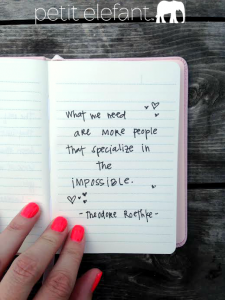 petit elefant.
What we need
are more people
that specialize in
the
impossible.
- Theodore Roethke -